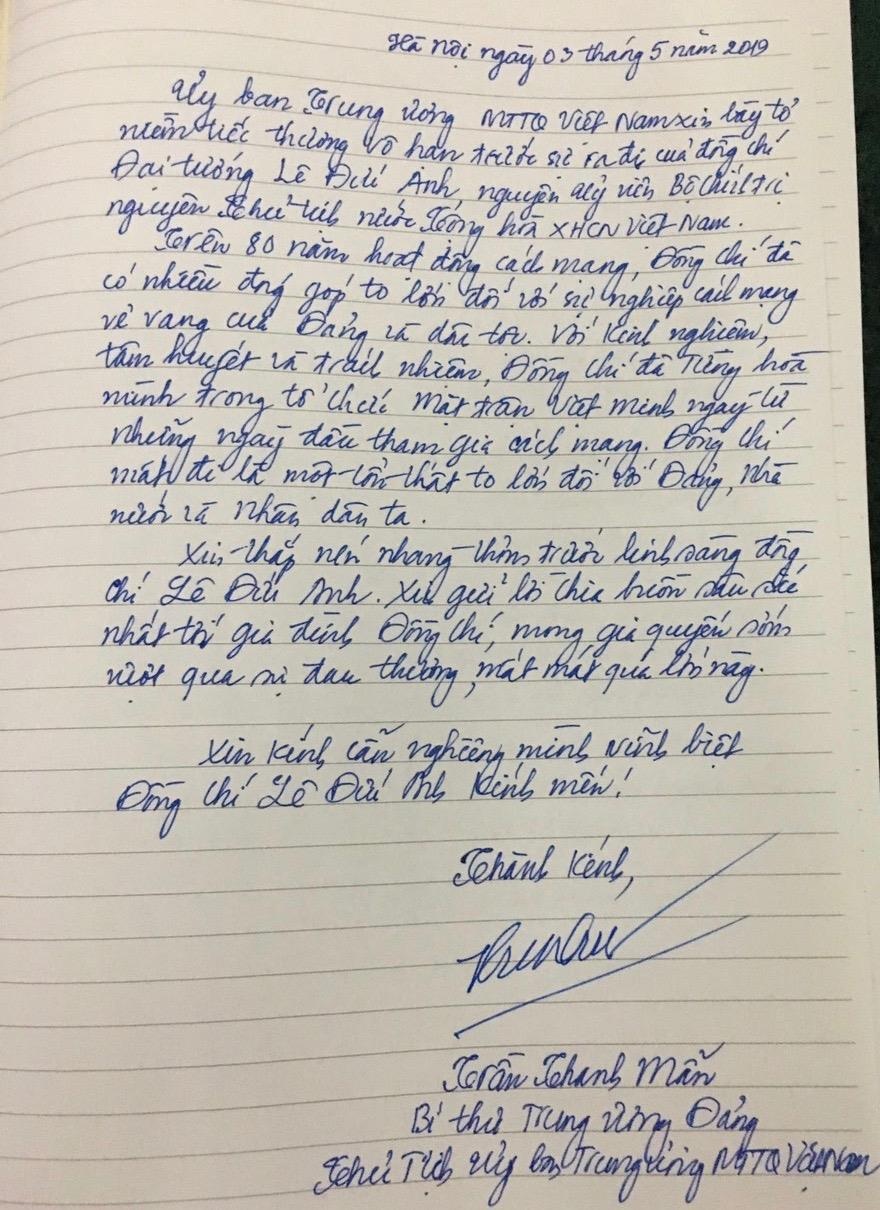 Hà Nội ngày 03 tháng 5 năm 2019
Ủy ban Trung ương MTTQ Việt Nam xin bày tỏ
niềm tiếc thương vô hạn trước sự ra đi của đồng chí
Đại tướng Lê Đức Anh, nguyên Ủy viên Bộ Chính trị
nguyên Chủ tịch nước Cộng hòa XHCN Việt Nam.
Trên 80 năm hoạt động cách mạng, Đồng chí đã
có nhiều đóng góp to lớn đối với sự nghiệp cách mạng
vẻ vang của Đảng và dân tộc. Với kinh nghiệm,
tâm huyết và trách nhiệm, Đồng chí đã từng hòa
mình trong tổ chức Mặt trận Việt minh ngay từ
những ngày đầu tham gia cách mạng. Đồng chí
mất đi là một tổn thất to lớn đối với Đảng, Nhà
nước và Nhân dân ta.
Xin thắp nén nhang thơm trước linh sàng đồng
chí Lê Đức Anh. Xin gửi lời chia buồn sâu sắc
nhất tới gia đình Đồng chí, mong gia quyến sớm
vượt qua sự đau thương, mất mát quá lớn này.
Xin kính cẩn nghiêng mình vĩnh biệt
Đồng chí Lê Đức Anh kính mến!
Thành kính,
Trần Thanh Mẫn
Bí thư Trung ương Đảng
Chủ Tịch Ủy ban Trung ương MTTQ Việt Nam